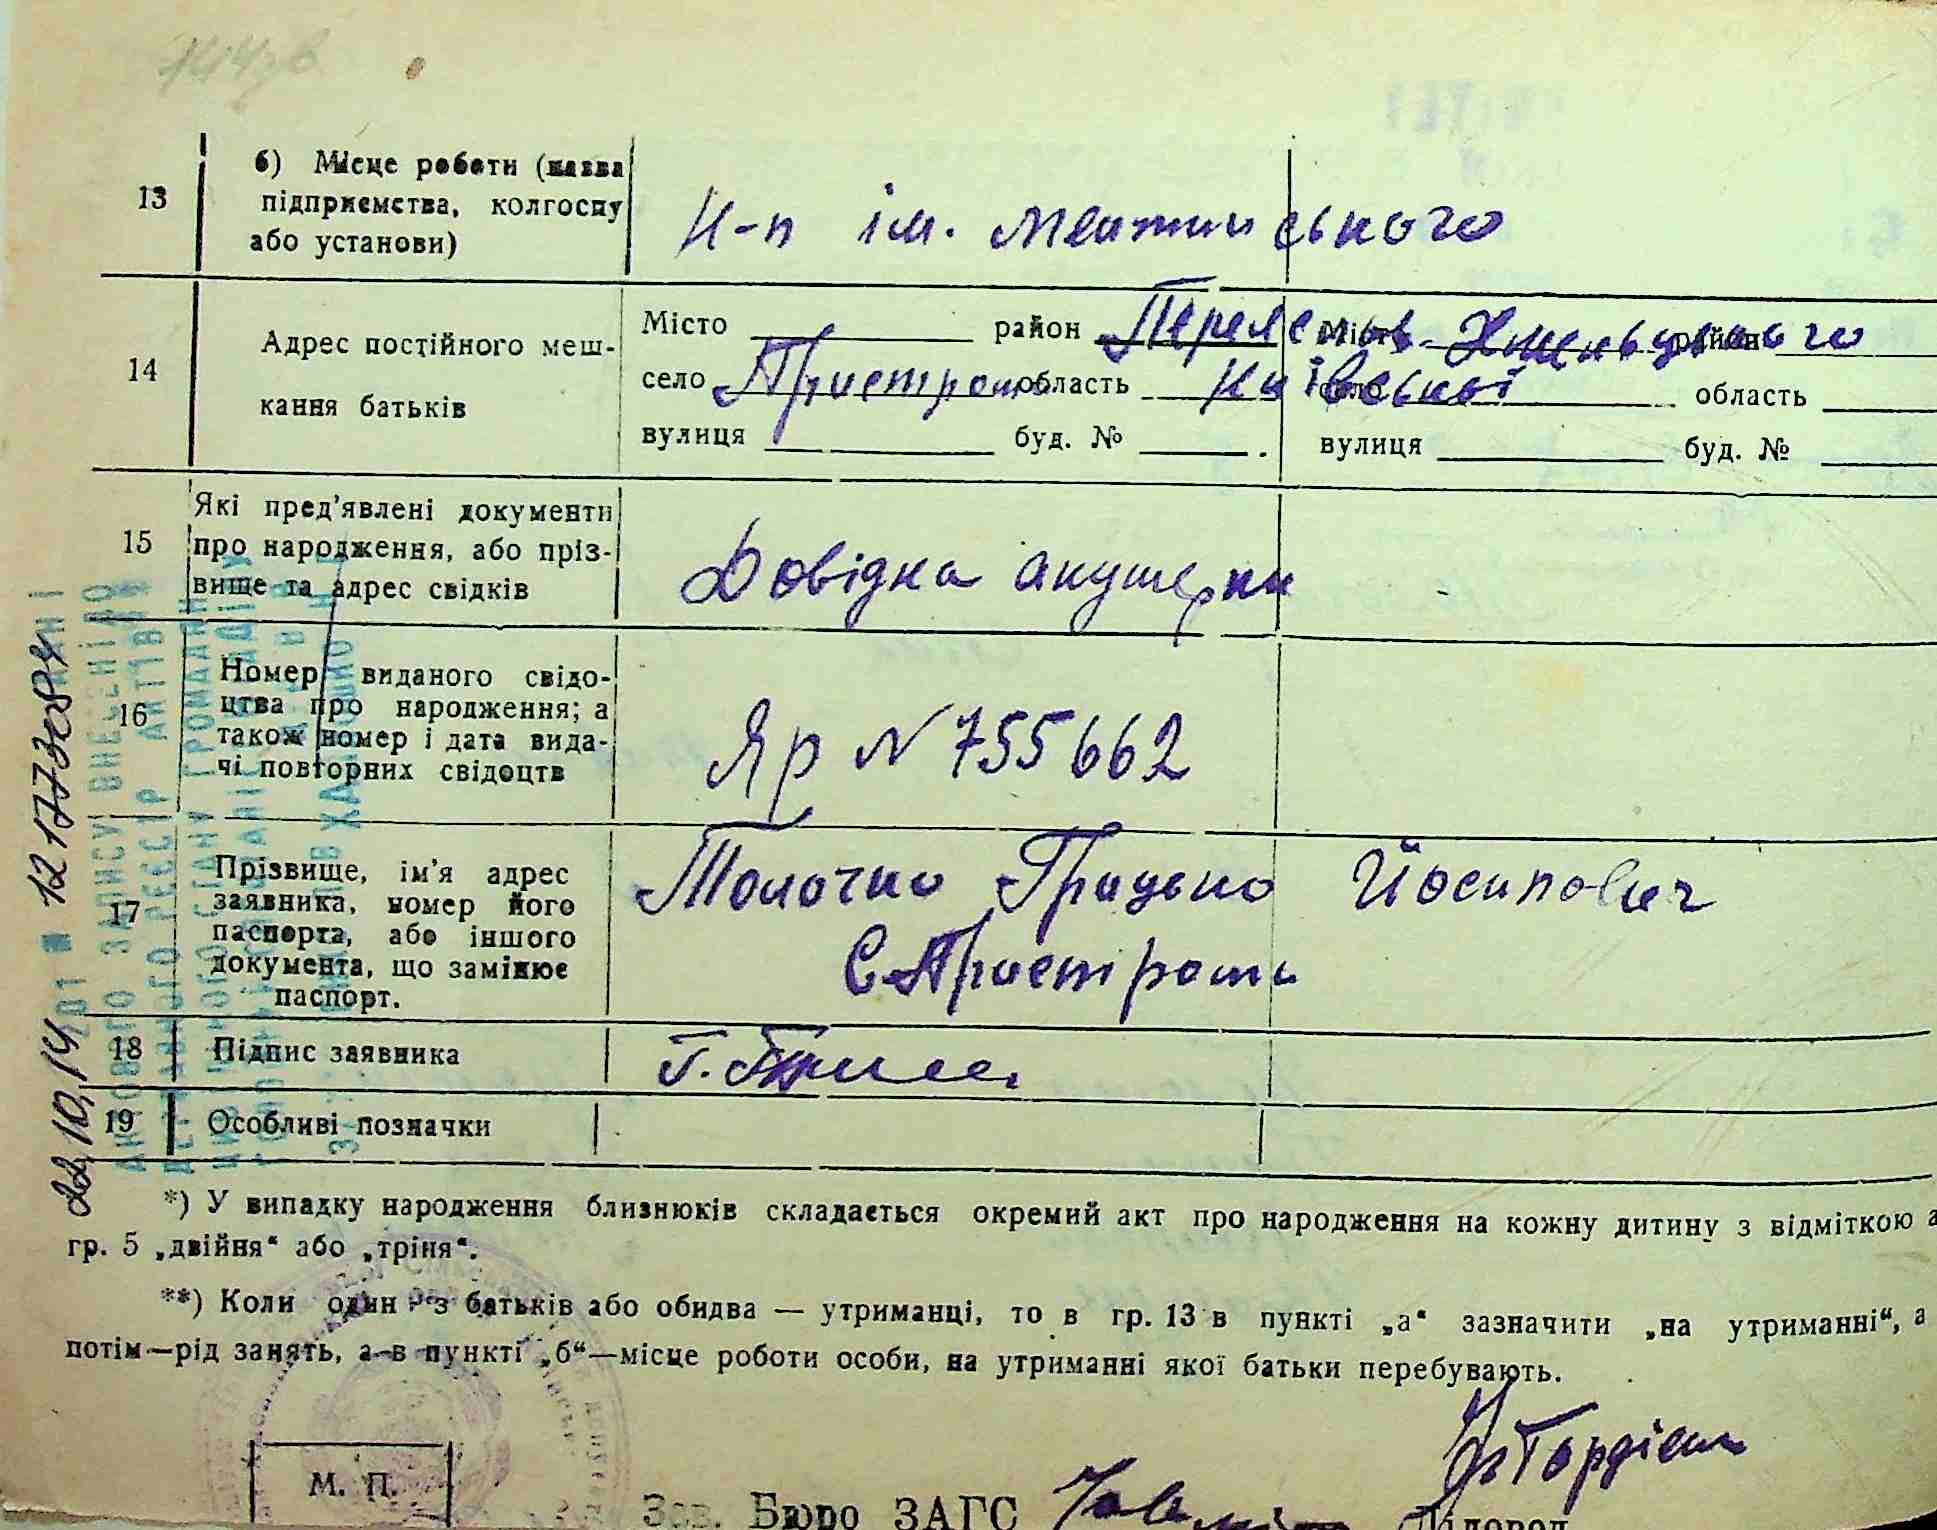 13
б) Місце роботи (назва
підприємства, колгоспу
або установи)
К-п ім. Менжинського
14
Адрес постійного меш-
кання батьків
Місто район Переяслав-Хмельницького
село Пристроми область Київської
вулиця буд. №
Місто район
село область
вулиця буд. №
15
Які пред'явлені документи
про народження, або пріз-
вище та адрес свідків
Довідка акушерки
16
Номер виданого свідо-
цтва про народження; а
також номер і дата вида-
чі повторних свідоцтв
Яр N 755662
17
Прізвище, ім'я адрес
заявника, номер його
паспорта, або іншого
документа, що замінює
паспорт.
Толочко Грицько Йосипович
С. Пристроми
18
Підпис заявника
19
Особливі позначки
*) У випадку народження близнюків складається окремий акт про народження на кожну дитину з відміткою в
гр. 5 „двійня“ або „тріня“.
**) Коли один з батьків або обидва — утриманці, то в гр. 13 в пункті „а“ зазначити „на утриманні“, а
потім—рід занять, а в пункті „б“—місце роботи особи, на утриманні якої батьки перебувають.
М. П.
Зав. Бюро ЗАГС
Діловод
22.10.14